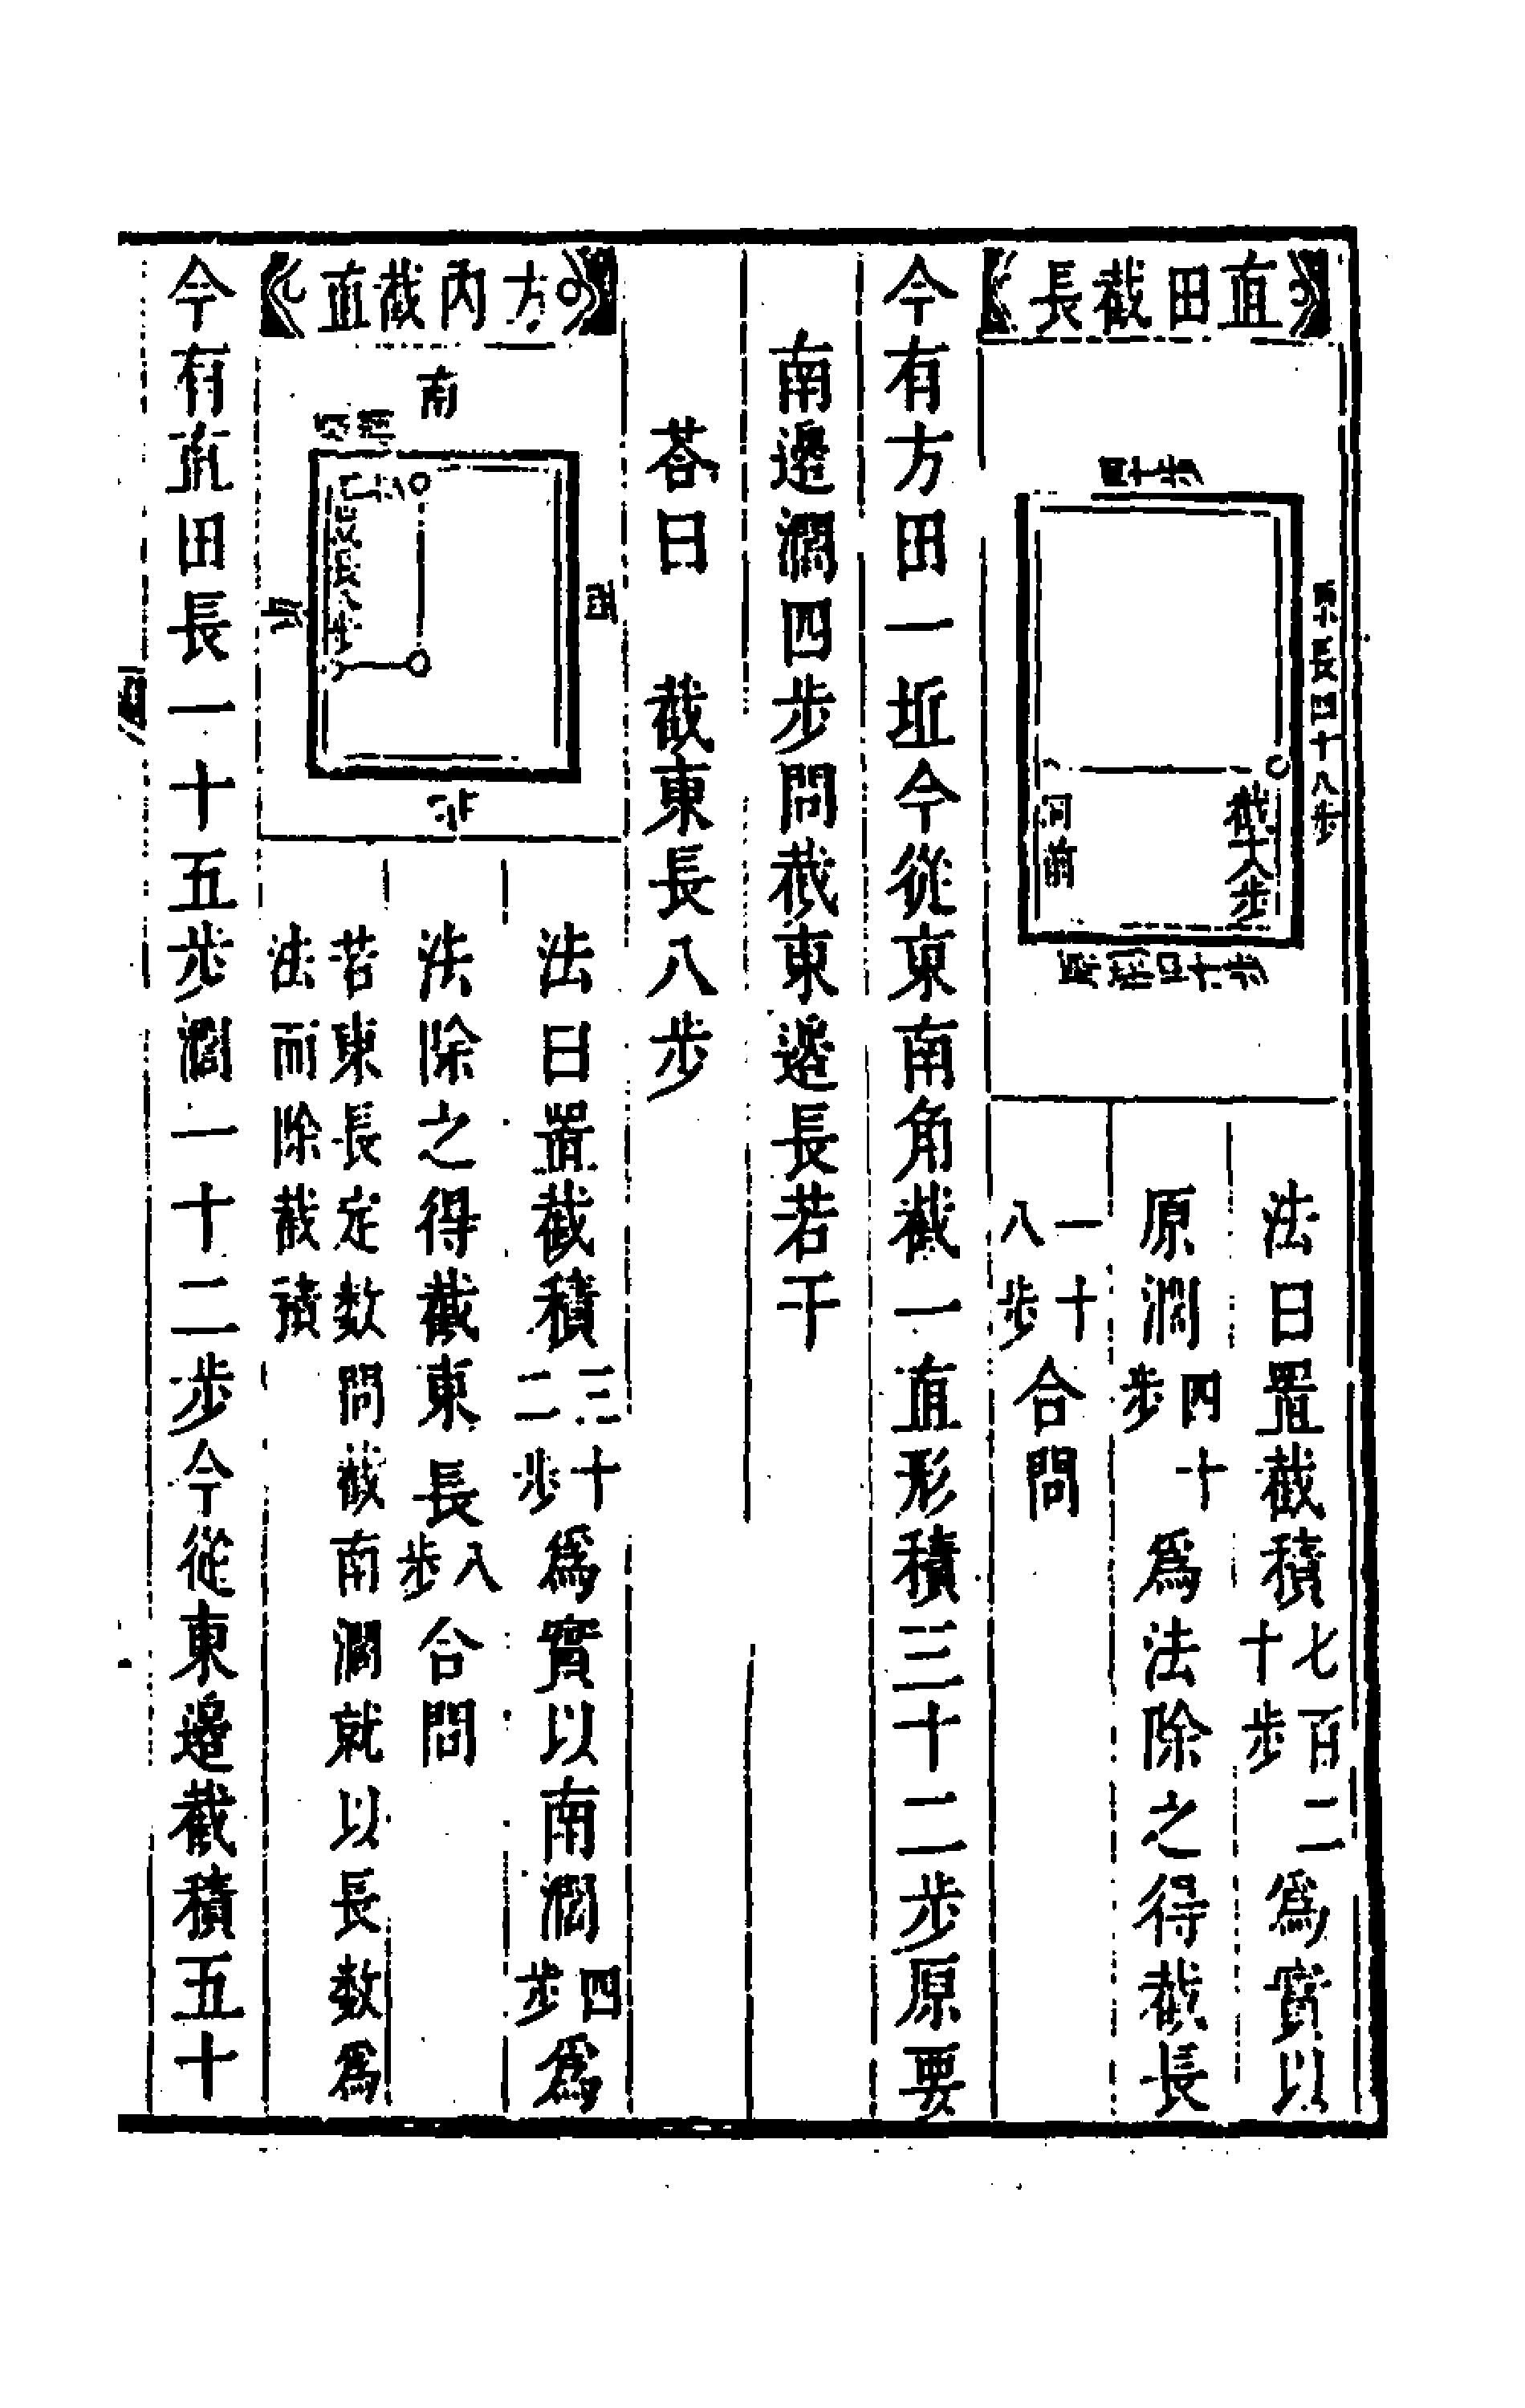 直田截長
四十步
原長四十八步
截十八步
原濶四十步
法曰置截積七百二十步爲實以
原濶四十步爲法除之得截長
一十八步合問
今有方田一坵今從東南角截一直形積三十二步原要
南邊濶四步問截東邊長若干
荅曰　截東長八步
方內截直
南
西
北
法曰置截積三十二步爲實以南濶四步爲
法除之得截東長八步合問
若東長定數問截南濶就以長數爲
法而除截積
今有直田長一十五步濶一十二步今從東邊截積五十